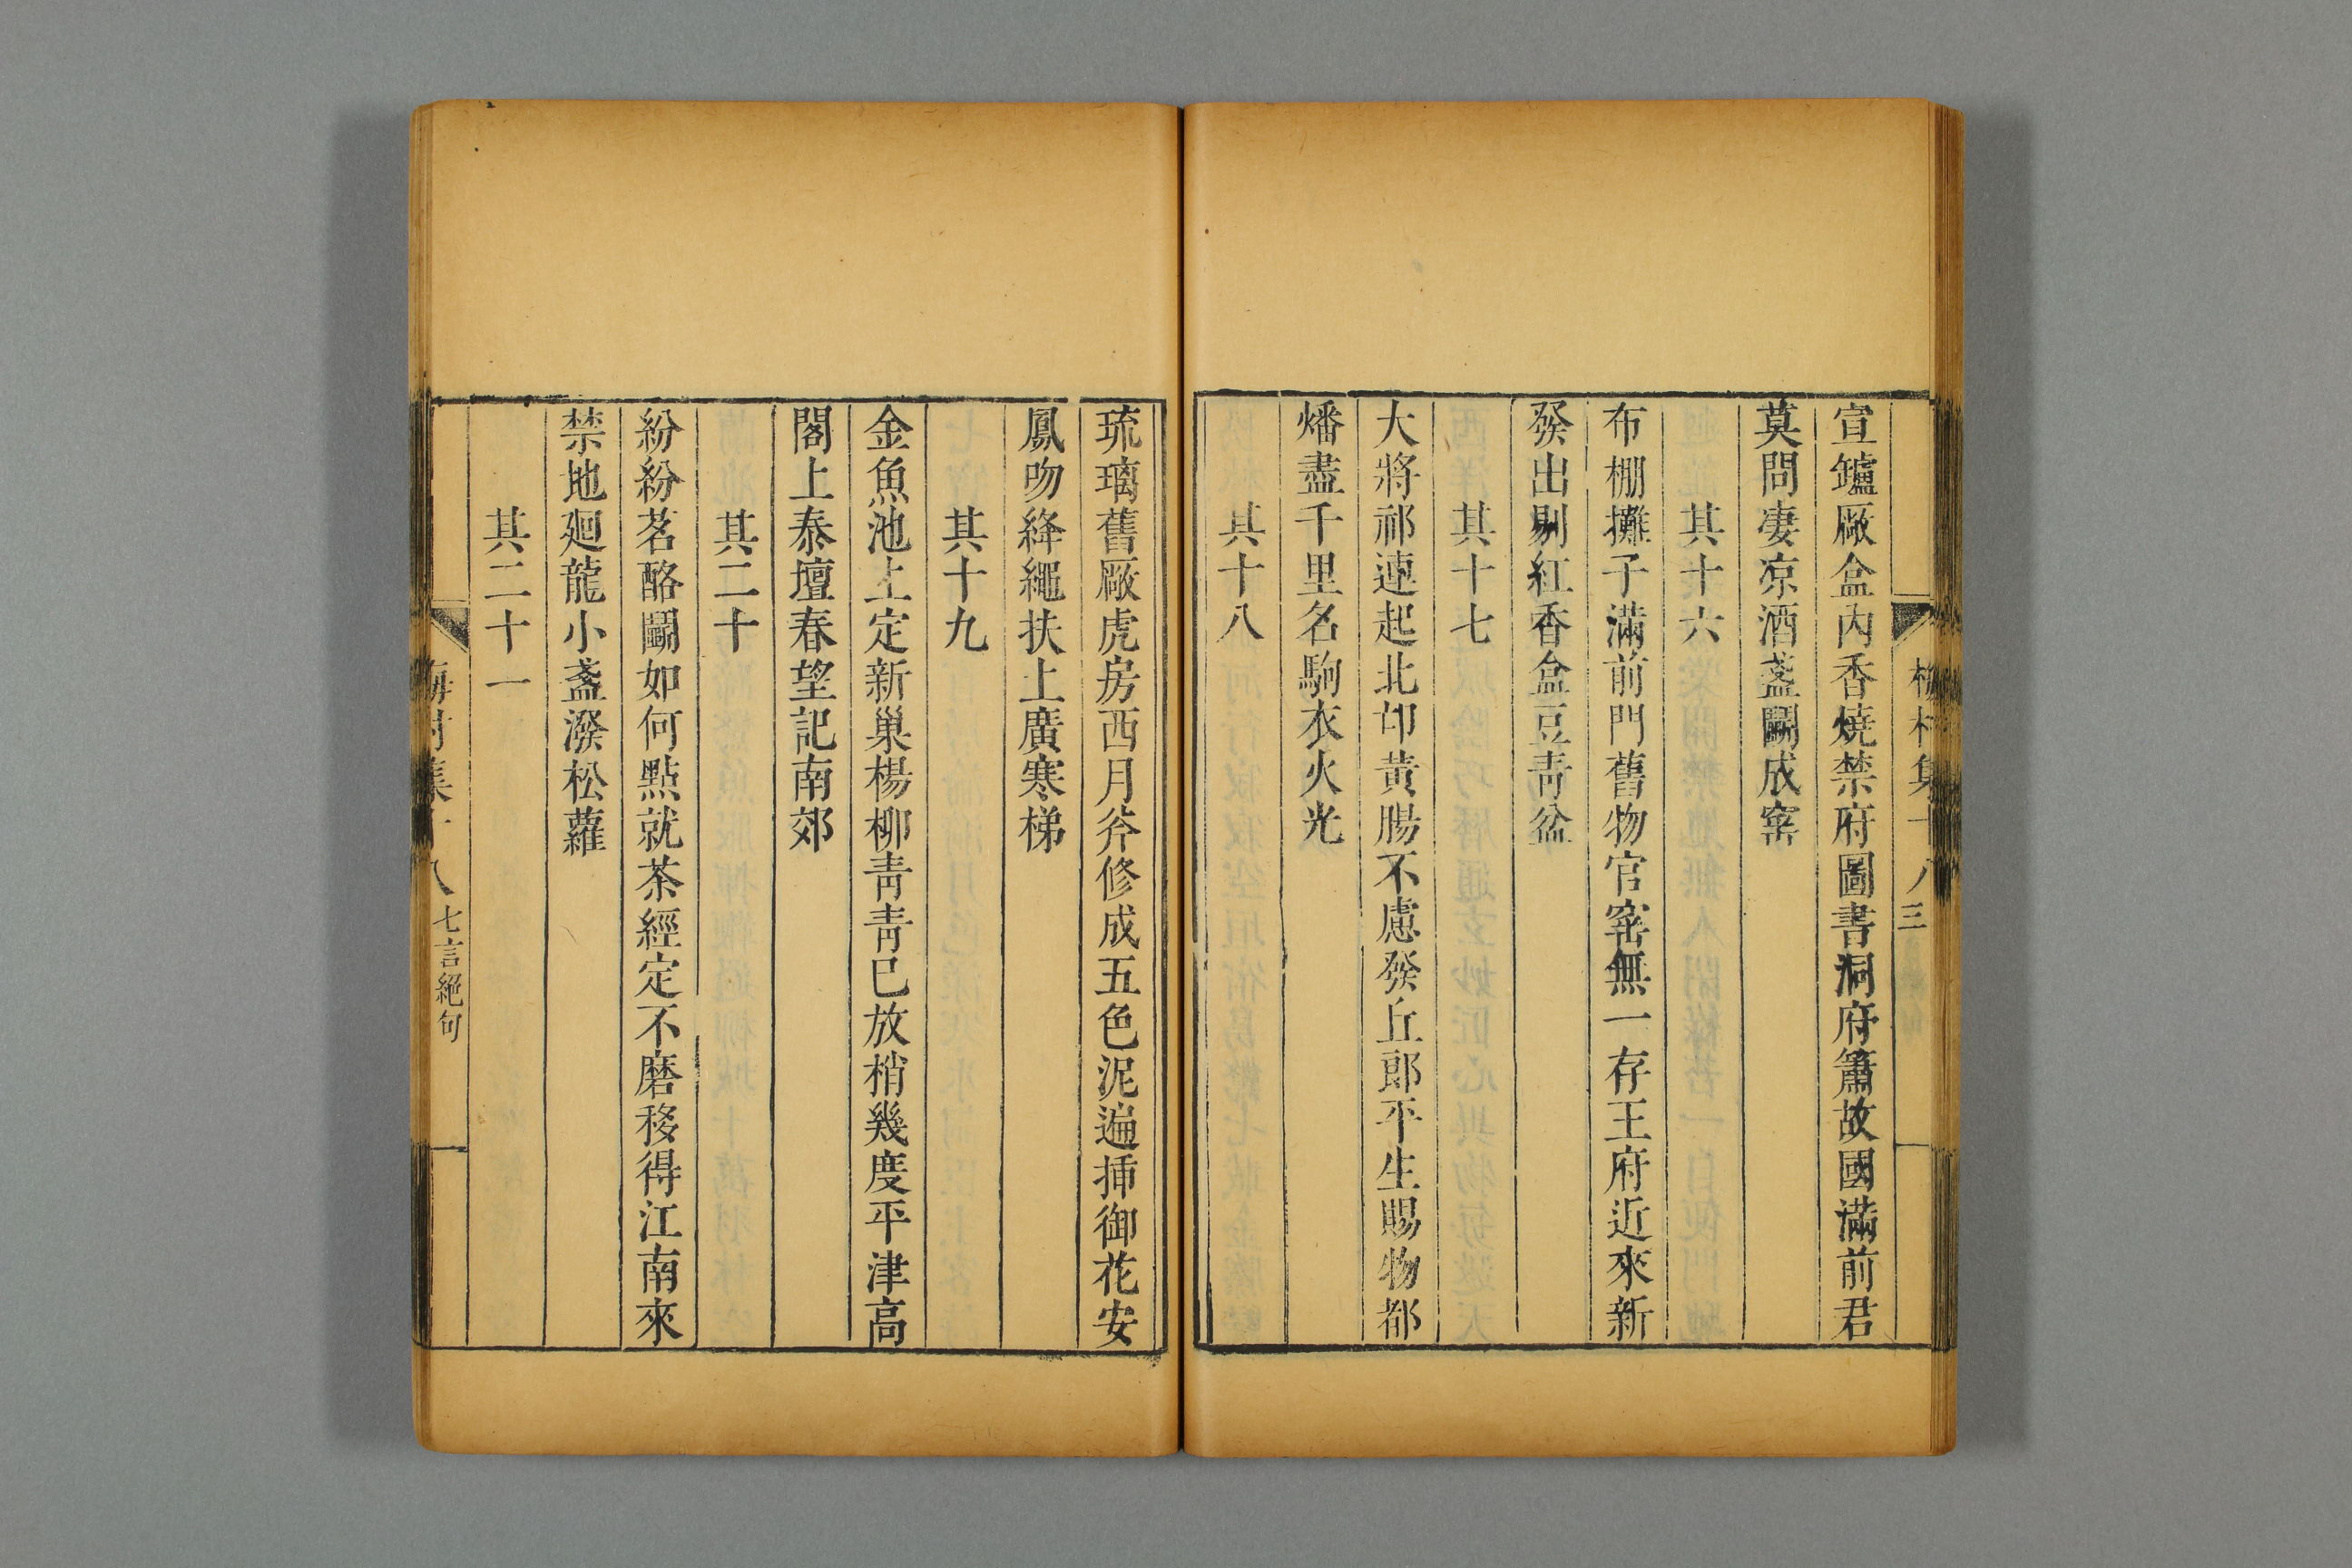 梅村集十八
三
宣鑪廠盒內香燒禁府圖書洞府簫故國滿前君
莫問凄凉酒盞鬬成窰
其十六
布棚攤子滿前門舊物官窰無一存王府近來新
發出剔紅香盒豆靑盆
其十七
大將祁連起北邙黃腸不慮發丘郎平生賜物都
燔盡千里名駒衣火光
其十八
琉璃舊廠虎房西月斧修成五色泥遍揷御花安
鳳吻絳繩扶上廣寒梯
其十九
金魚池上定新巢楊柳靑靑已放梢幾度平津高
閣上泰壇春望記南郊
其二十
紛紛茗酪鬬如何點就茶經定不磨移得江南來
禁地廻龍小盞潑松蘿
其二十一
梅村集十八 七言絕句